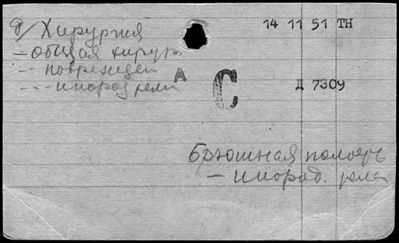 д/ Хирургия
14 11 51 ТН
– общая хирур
– – поврежден
А С
– – – инород тела
Д 7309
Брюшная полость
– инород. тела